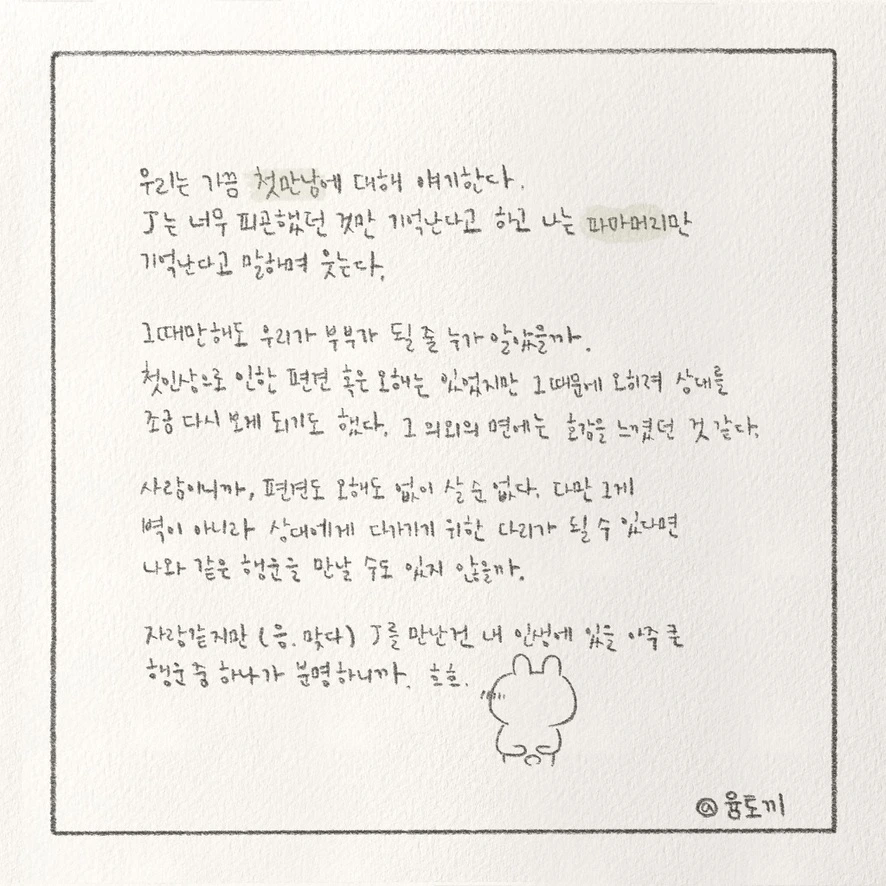 우리는 가끔 첫만남에 대해 얘기한다.
J는 너무 피곤했던 것만 기억난다고 하고 나는 파마머리만
기억난다고 말하며 웃는다.
그때만해도 우리가 부부가 될 줄 누가 알았을까.
첫인상으로 인한 편견 혹은 오해는 있었지만 그때문에 오히려 상대를
조금 다시 보게 되기도 했다. 그 의외의 면에는 호감을 느꼈던 것 같다.
사람이니까, 편견도 오해도 없이 살 순 없다. 다만 그게
벽이 아니라 상대에게 다가가기 위한 다리가 될 수 있다면
나와 같은 행운을 만날 수도 있지 않을까.
자랑같지만 (음. 맞다) J를 만난건 내 인생에 있을 아주 큰
행운 중 하나가 분명하니까. 흐흐.
@윰토끼